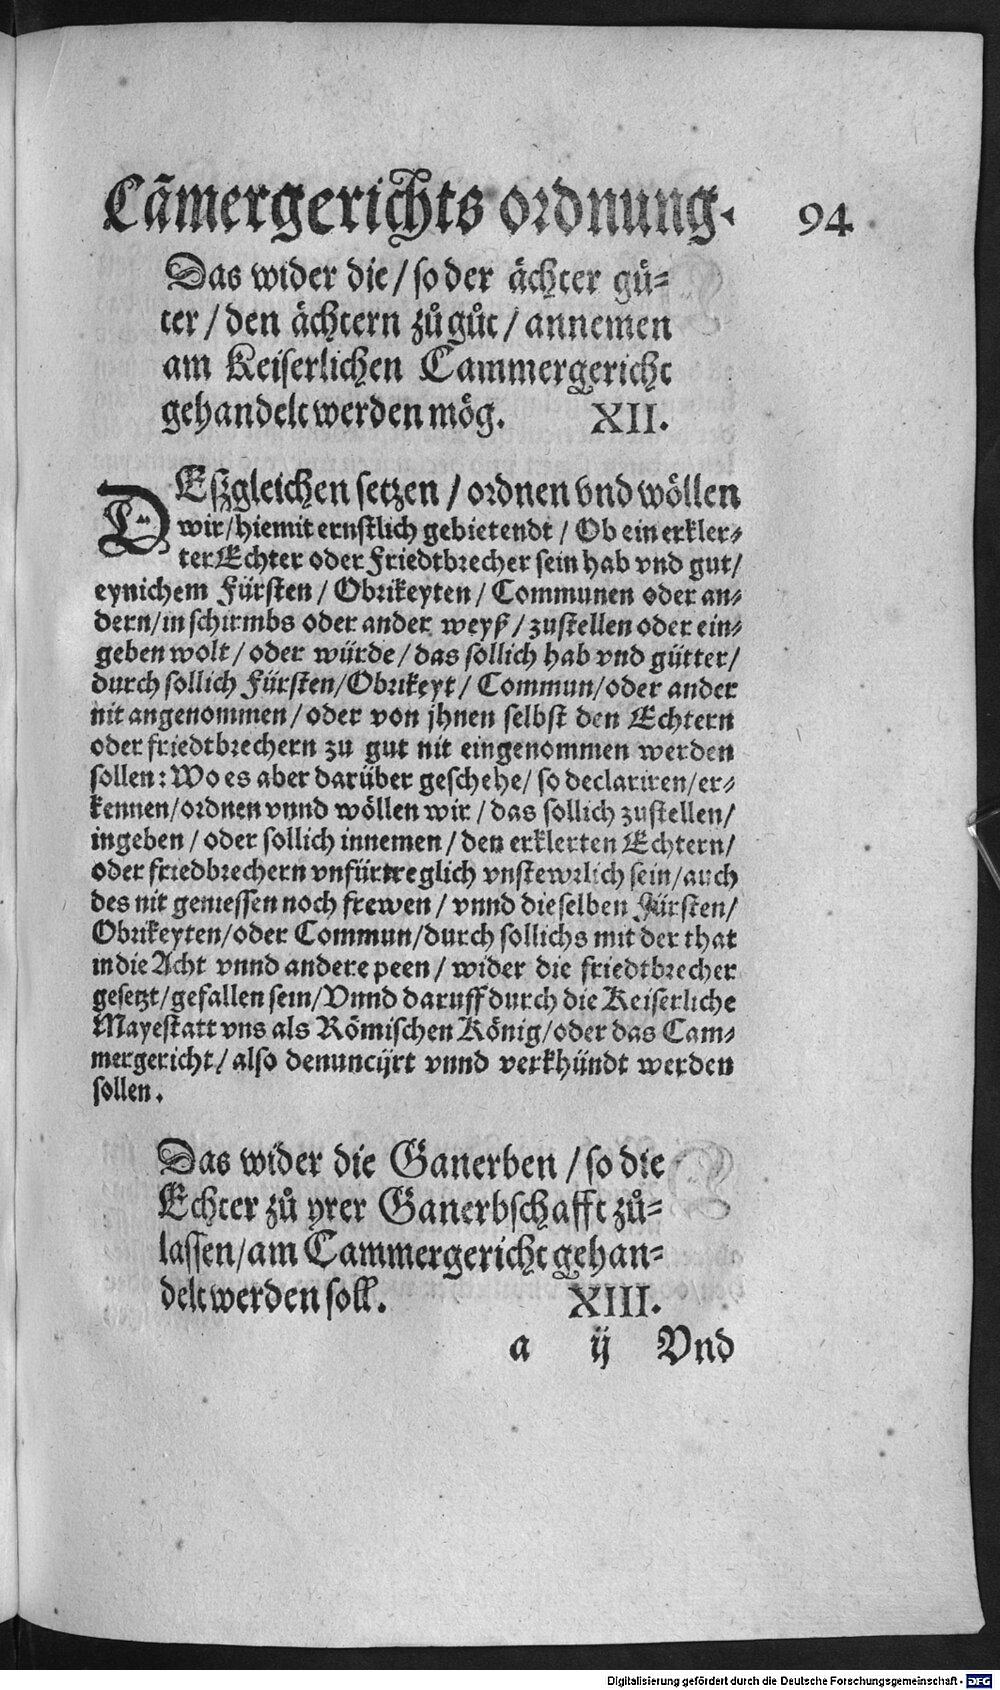 Cãmergerichts ordnung. 94
Das wider die / so der ächter gü-
ter / den ächtern zů gůt / annemen
am Keiserlichen Cammergericht
gehandelt werden mög. XII.
DEßgleichen setzen / ordnen vnd wöllen
wir / hiemit ernstlich gebietendt / Ob ein erkler-
ter Echter oder Friedtbrecher sein hab vnd gut /
eynichem Fürsten / Obrikeyten / Communen oder an-
dern / in schirmbs oder ander weyß / zustellen oder ein-
geben wolt / oder würde / das sollich hab vnd gütter /
durch sollich Fürsten / Obrikeyt / Commun / oder ander
nit angenommen / oder von jhnen selbst den Echtern
oder friedtbrechern zu gut nit eingenommen werden
sollen: Wo es aber darüber geschehe / so declariren / er-
kennen / ordnen vnnd wöllen wir / das sollich zustellen /
ingeben / oder sollich innemen / den erklerten Echtern /
oder friedbrechern vnfürtreglich vnstewrlich sein / auch
des nit geniessen noch frewen / vnnd dieselben Fürsten /
Obrikeyten / oder Commun / durch sollichs mit der that
in die Acht vnnd andere peen / wider die friedtbrecher
gesetzt / gefallen sein / Vnnd daruff durch die Keiserliche
Mayestatt vns als Römischen König / oder das Cam-
mergericht / also denuncijrt vnnd verkhündt werden
sollen.
Das wider die Ganerben / so die
Echter zů yrer Ganerbschafft zů-
lassen / am Cammergericht gehan-
delt werden soll. XIII.
a ij Vnd
Digitalisierung gefördert durch die Deutsche Forschungsgemeinschaft - DFG